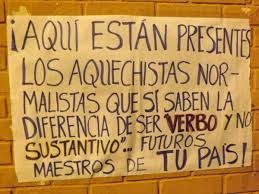 ¡AQUÍ ESTÁN PRESENTES
LOS AQUECHISTAS NOR-
MALISTAS QUE SÍ SABEN LA
DIFERENCIA DE SER VERBO Y NO
SUSTANTIVO"... FUTUROS
MAESTROS DE TU PAIS!